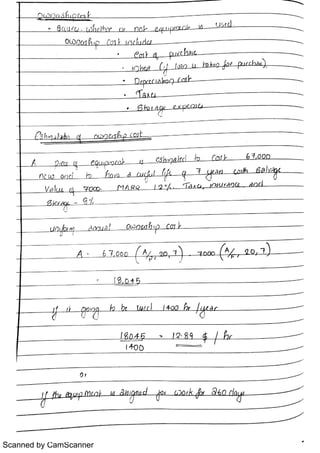 Ownership cost
• Occurs, whether or not equipment is used.
Ownership cost includes
• Cost of purchase
• Interest (if loan is taken for purchase)
• Depreciation cost
• Taxes
• Storage expenses
Calculation of ownership cost
A piece of equipment is estimated to cost 67,000
new and to have a useful life of 7 years with salvage
value of 7000. MARR 12%. Taxes, insurance and
storage - 8%
Uniform annual ownership cost
A = 67,000 (A/P, 20, 7) - 7000 (A/F, 20, 7)
= 18,045
If it going to be used 1400 hr / year
18045 / 1400 = 12.89 $ / hr
or
If the equipment is assigned for work for 260 days
Scanned by CamScanner